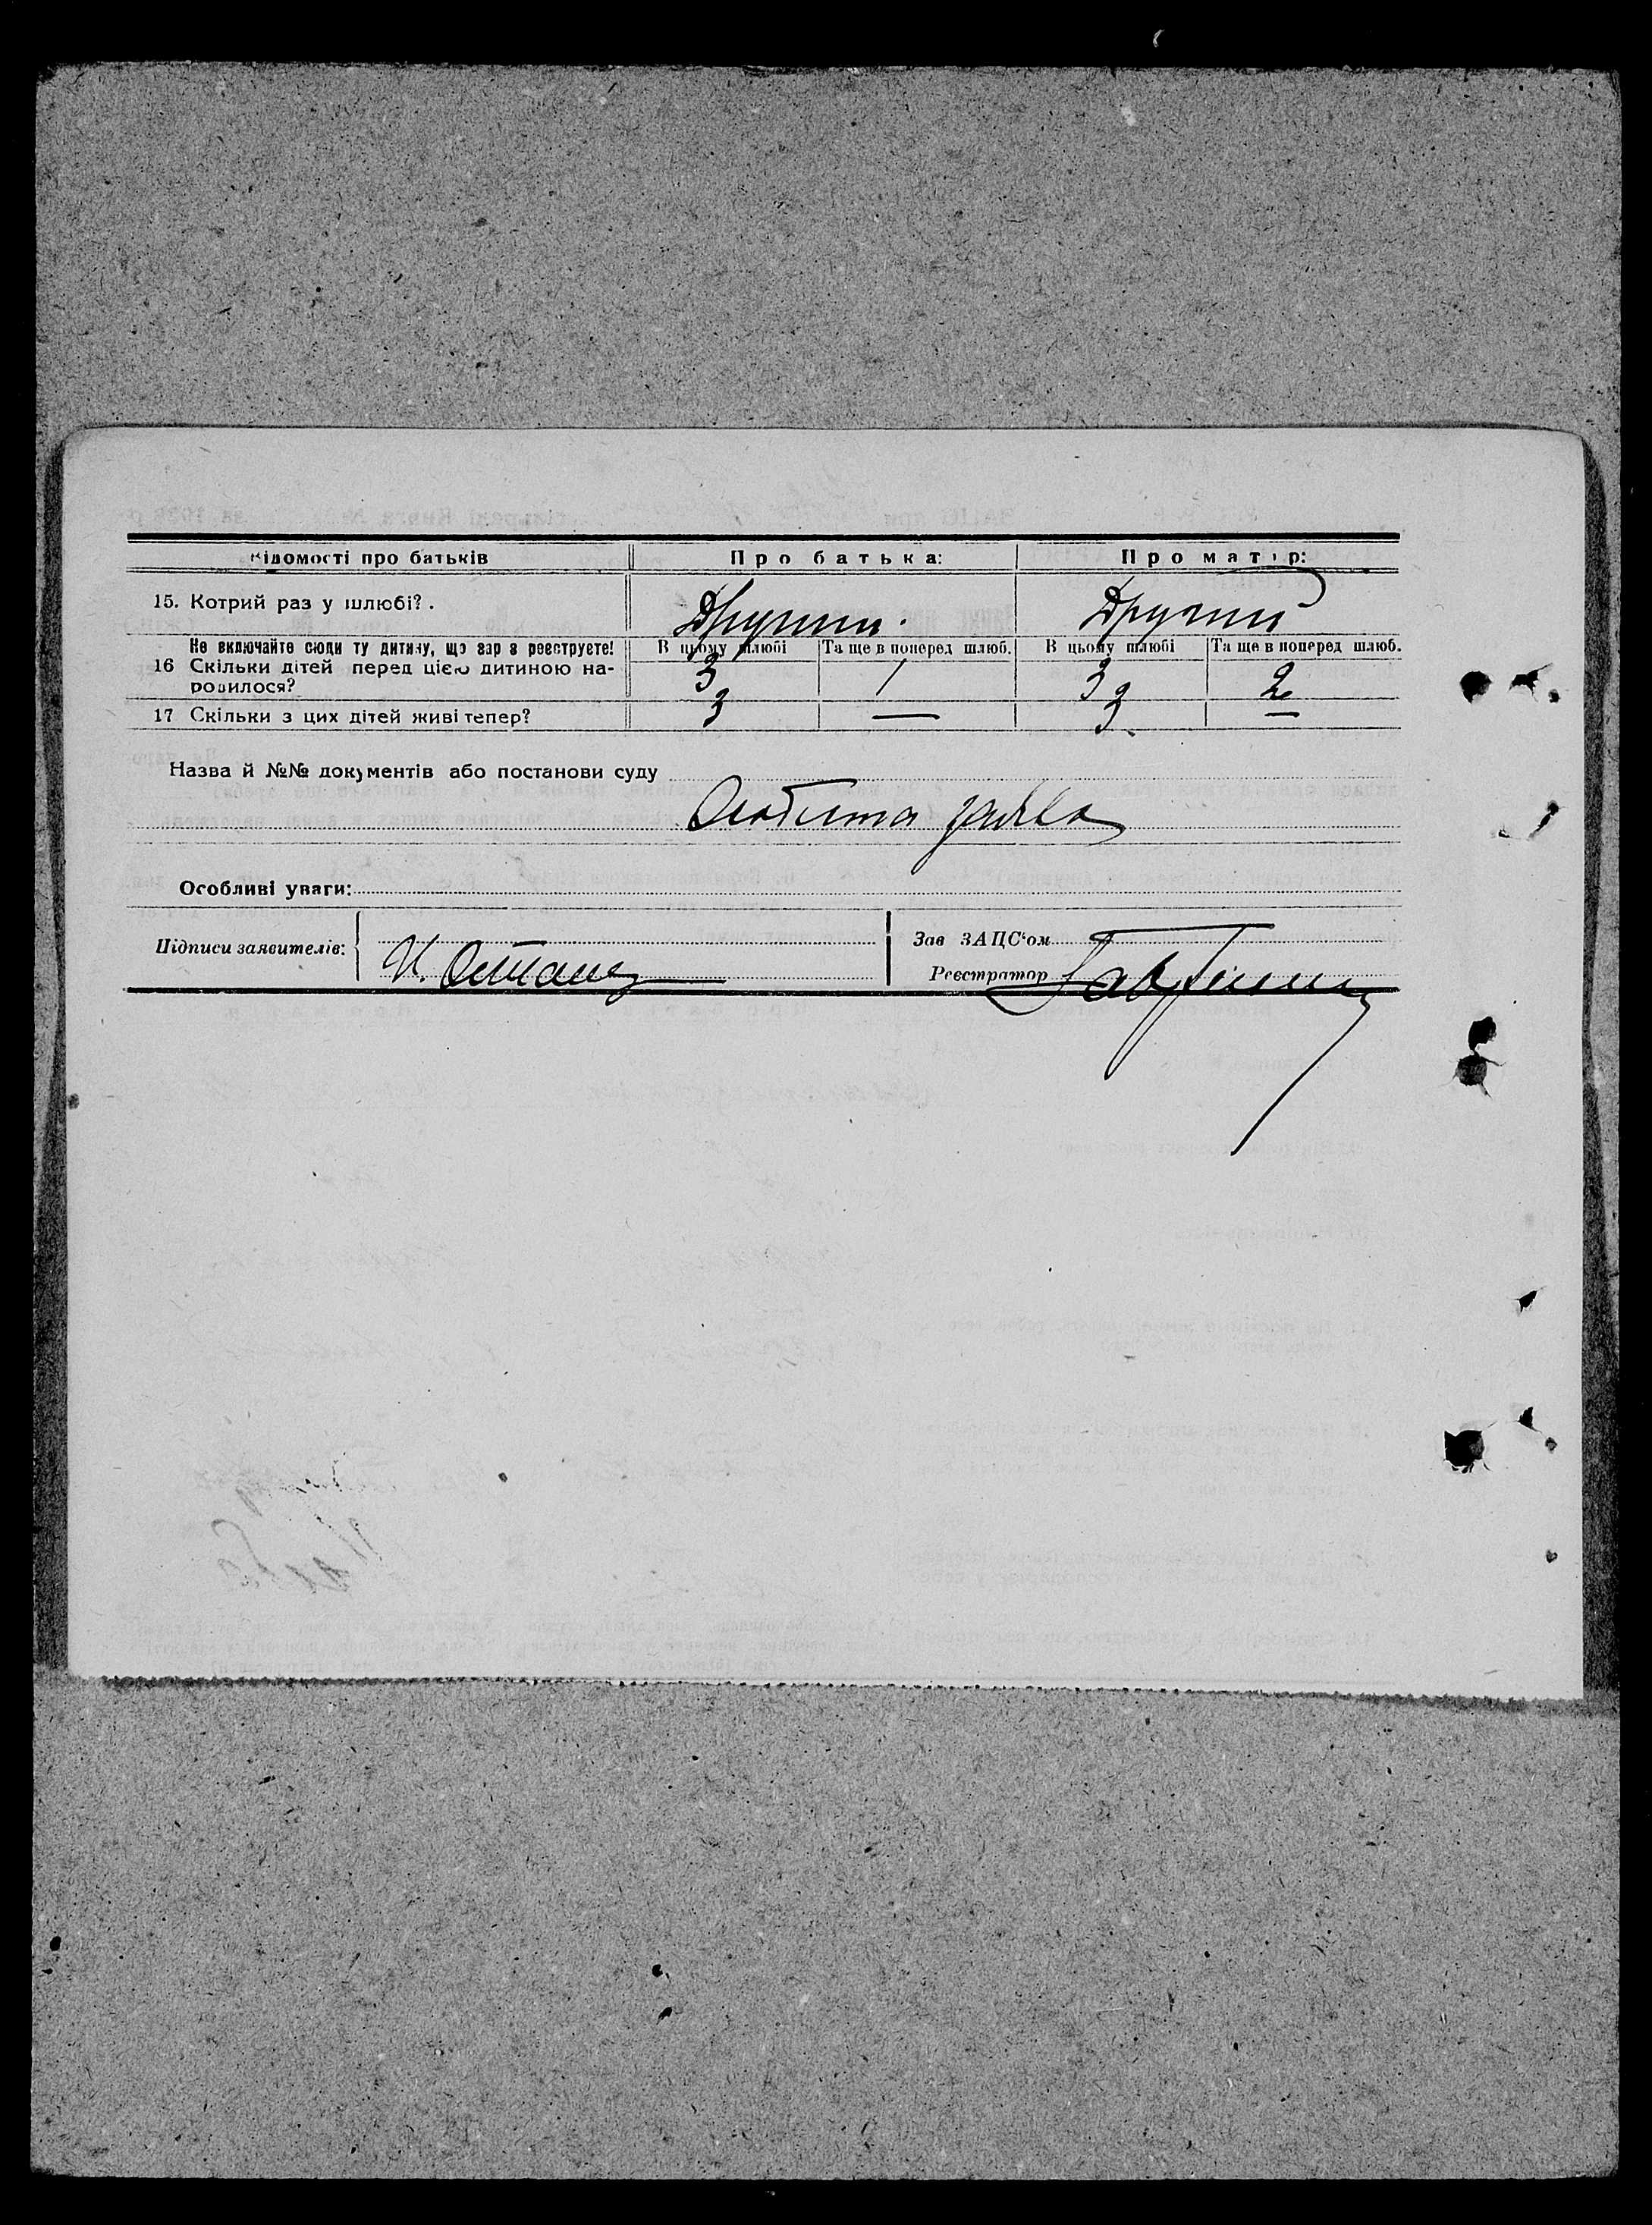 Відомості про батьків Про батька: Про матір:
15. Котрий раз у шлюбі? . Другий. Другий
Не включайте сюди ту дитину, що зараз реєструєте! В цьому шлюбі Та ще в поперед шлюб. В цьому шлюбі Та ще в поперед шлюб.
16 Скільки дітей перед цією дитиною на- 3 1 3 2
родилося?
17 Скільки з цих дітей живі тепер? 3 — 3 —
Назва й №№ документів або постанови суду
Особиста заява
Особливі уваги:
Підписи заявителів: Зав ЗАЦС'ом
И. Реєстратор